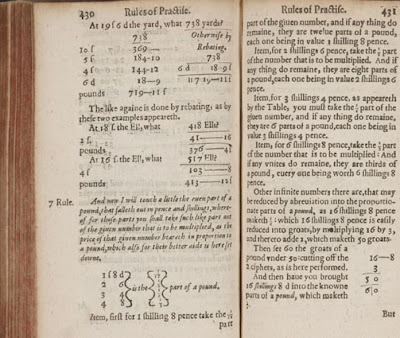 430 Rules of Practise.
At 19 ſ 6 d the yard, what 738 yards?
738 Otherwiſe by
10 ſ 369— Rebating.
5 ſ 184-10 738
4 ſ 144-12 6 d 18-9ſ
6 d 18—9 719-11ſ
pounds 719—11ſ
The like againe is done by rebating, as by
theſe two examples appeareth.
At 18 ſ. the Ell, what 418 Ells?
2 ſ. 41—16
pounds 376—4ſ
At 16 ſ. the Ell, what 517 Ells?
4 ſ 103—8
pounds 413—12ſ
7 Rule. And now I will touch a little the euen part of a
pound, that falleth out in pence and ſhillings, where-
of for thoſe parts you ſhall take ſuch like part out
of the giuen number that is to be multiplied, as the
price of that giuen number beareth in proportion to
a pound, which alſo for their better aide is here ſet
downe.
1 ſ 8 d
2 6 is the part of a pound.
3 4
6 8
Item, firſt for 1 ſhilling 8 pence take the 1/12
part
Rules of Practiſe. 431
part of the giuen number, and if any thing do
remaine, they are twelue parts of a pound,
each one being in value 1 ſhilling 8 pence.
Item, for 2 ſhillings 6 pence, take the 1/8 part
of the number that is to be multiplied. And if
any thing do remaine, they are eight parts of
a pound, each one being in value 2 ſhillings 6
pence.
Item, for 3 ſhillings 4 pence, as appeareth
by the Table, you muſt take the 1/6 part of the
giuen number, and if any thing do remaine,
they are 6 parts of a pound, each one being in
value 3 ſhillings 4 pence.
Item, for 6 ſhillings 8 pence, take the 1/3 part
of the number that is to be multiplied: And
if any vnites do remaine, they are thirds of
a pound, euery one being worth 6 ſhillings 8
pence.
Other infinite numbers there are, that may
be reduced by abreuiation into the proportio-
nate parts of a pound, as 16 ſhillings 8 pence
maketh which 16 ſhillings 8 pence is eaſily
reduced into groats, by multiplying 16 by 3,
and thereto adde 2, which maketh 50 groats.
Then ſet 60 the groats of a
pound vnder 50: cutting off the 16—8
2 ciphers, as is here performed. 3
And then haue you brought 5|0
16 ſhillings 8 d into the knowne 6|0
parts of a pound, which maketh
But